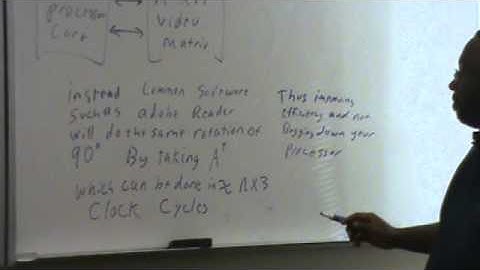 processor
Core
Video
Matrix
instead Common Software
Such as adobe Reader
will do the same rotation of
90° By taking A^T
which can be done in
Clock Cycles
Thus improving
Efficiency and not
Bogging down your
Processor